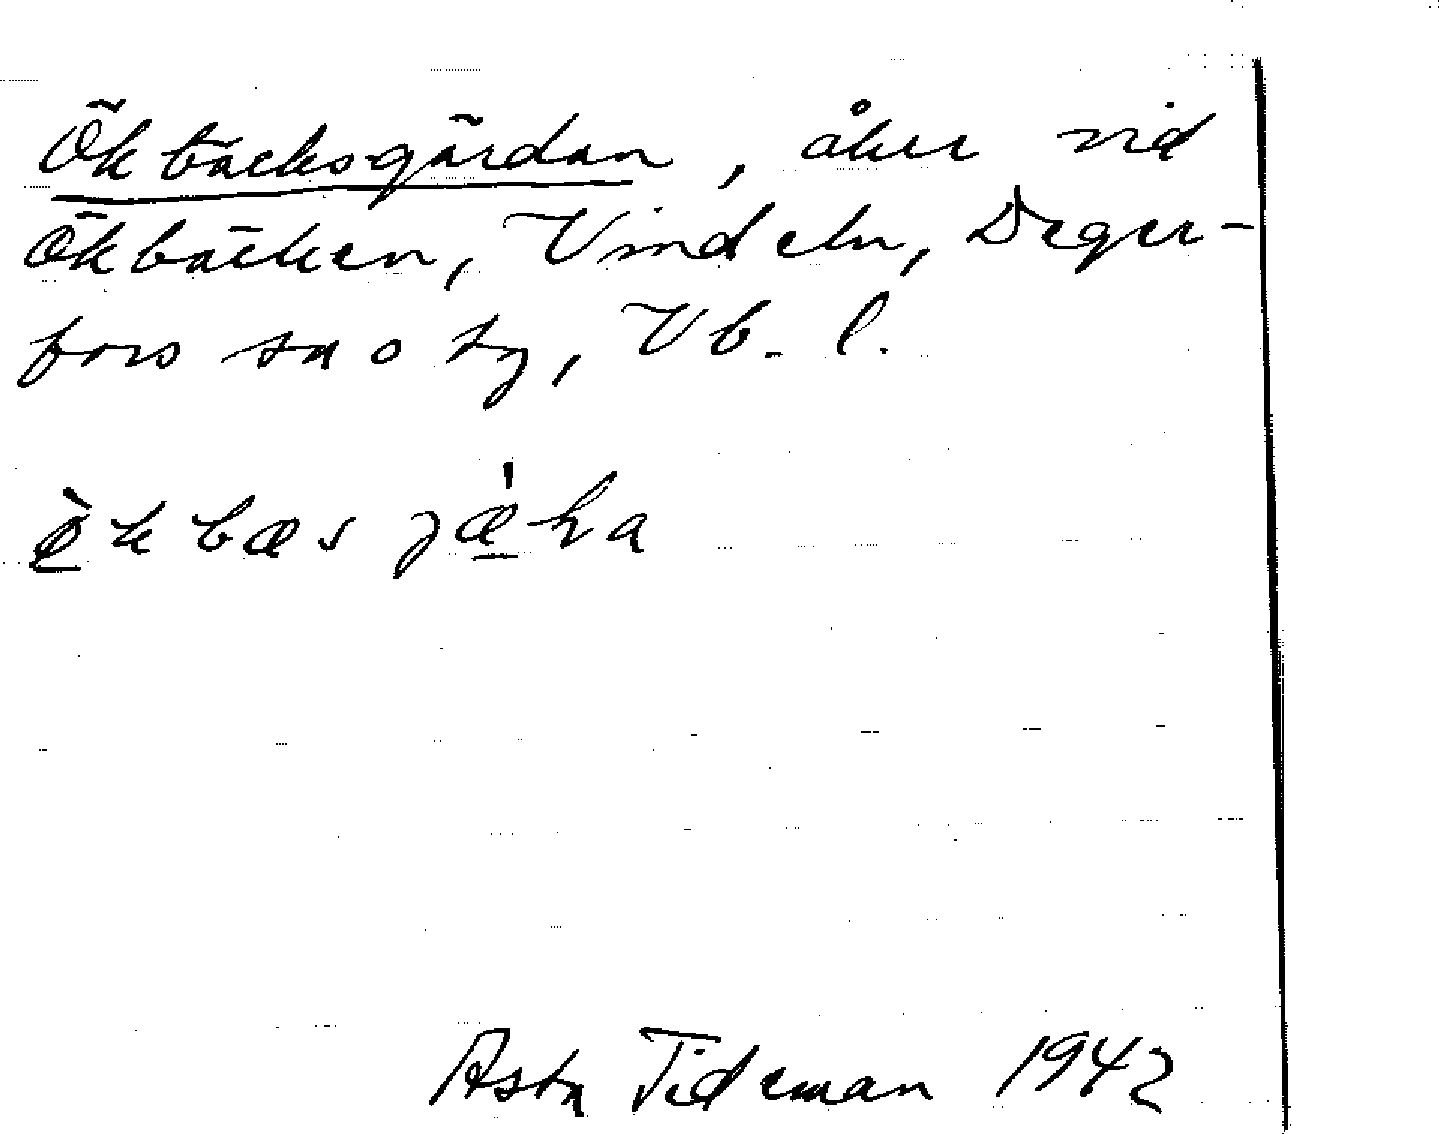 Ökbäcksgärdan, åker vid
Ökbäcken, Vindeln, Deger-
fors sn o tg, Vb. l.
Asta Tideman 1942